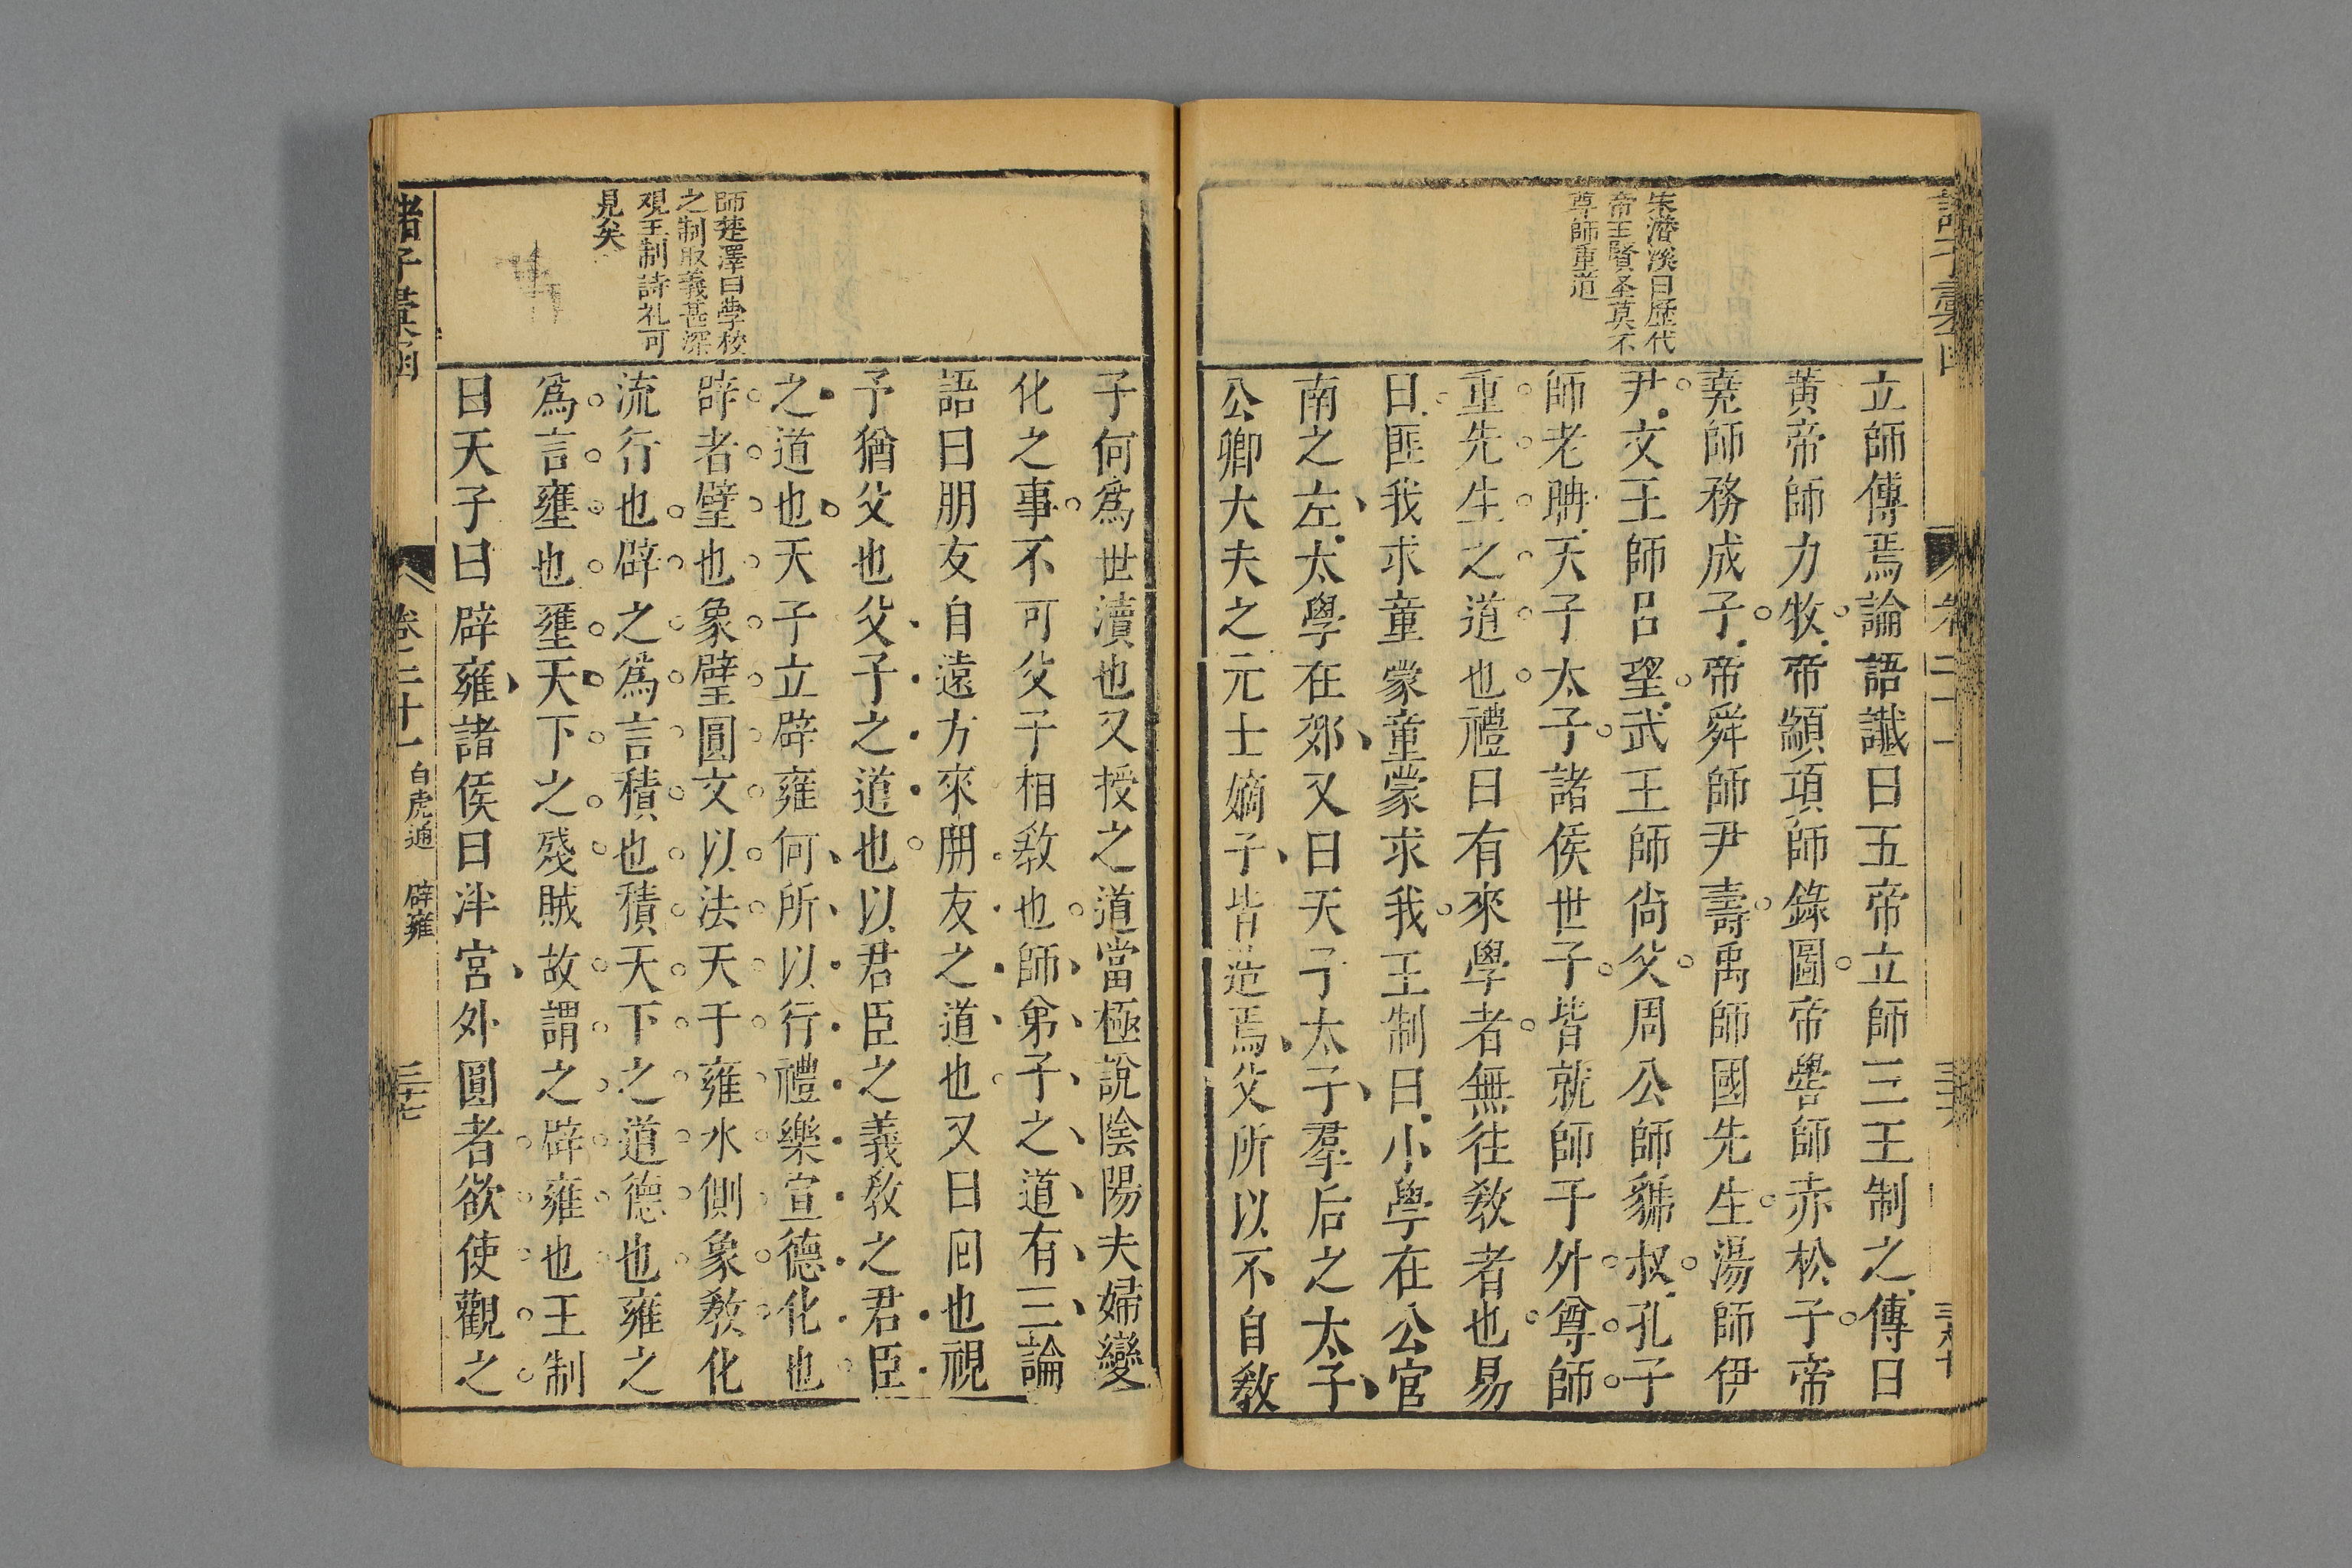 朱濳溪曰歷代
帝王賢圣莫不
尊師重道
立師傅焉論語讖曰五帝立師三王制之傳曰
黃帝師力牧帝顓項師錄圖帝嚳師赤松子帝
堯師務成子帝舜師尹壽禹師國先生湯師伊
尹文王師呂望武王師尚父周公師虢叔孔子
師老聃天子太子諸侯世子皆就師于外尊師
重先生之道也禮曰有來學者無徃敎者也易
曰匪我求童蒙童蒙求我王制曰小學在公官
南之左太學在郊又曰天子太子羣后之太子
公卿大夫之元士嫡子皆造焉父所以不自敎
師楚澤曰學校
之制取義甚深
覌王制詩礼可
見矣
子何爲世瀆也又授之道當極說陰陽夫婦變
化之事不可父子相敎也師弟子之道有三論
語曰朋友自遠方來朋友之道也又曰回也視
予猶父也父子之道也以君臣之義敎之君臣
之道也天子立辟雍何所以行禮樂宣德化也
辟者璧也象璧圓文以法天于雍水側象敎化
流行也辟之爲言積也積天下之道德也雍之
爲言壅也壅天下之殘賊故謂之辟雍也王制
曰天子曰辟雍諸侯曰泮宮外圓者欲使觀之
諸子彙函
卷二十一
白虎通
辟雍
三十七